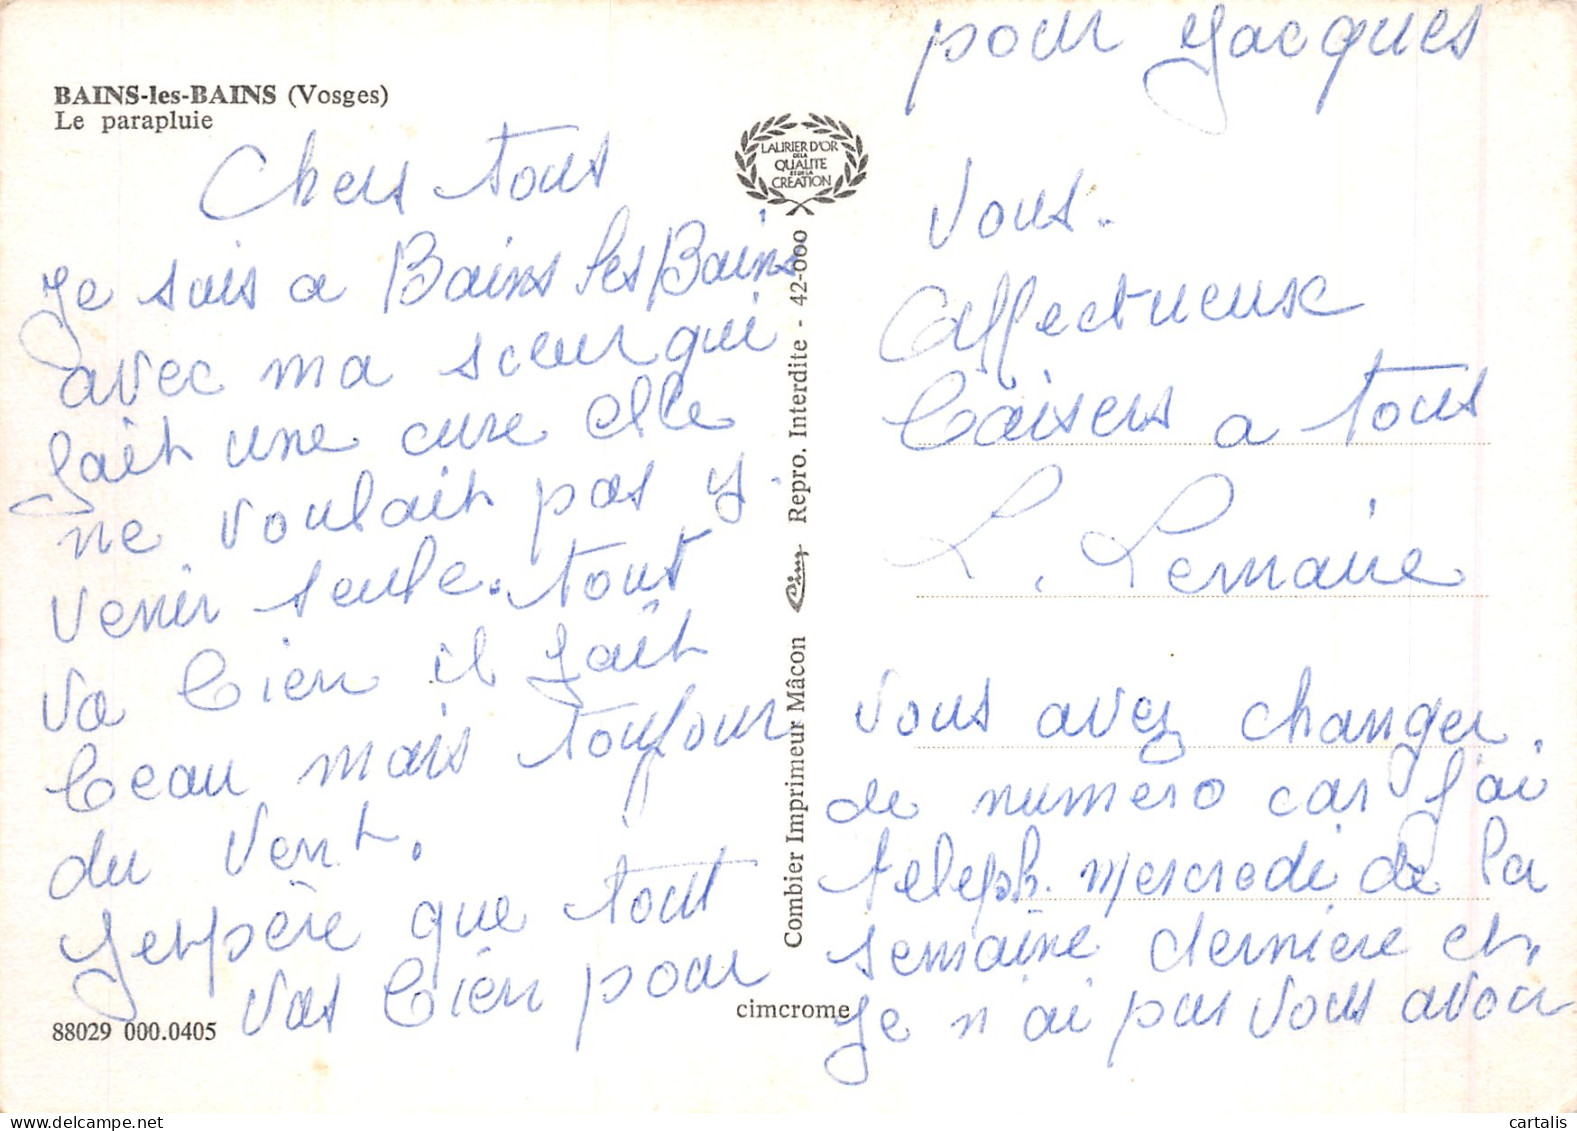 BAINS-les-BAINS (Vosges)
Le parapluie
Chers tous
Je suis a Bains les Bains
avec ma sœur qui
fait une cure elle
ne voulait pas y
venir seule. tout
va bien il fait
beau mais toujour
du vent.
J'espère que tout
vas bien pour
88029 000.0405
LAURIER D'OR
DE LA
QUALITE
ET DE LA
CREATION
Combier Imprimeur Mâcon Cim Repro. Interdite - 42-000
cimcrome
pour Jacques
Vous.
Affectueuse
baisers a tous
L. Lemaire
Vous avez changer
de numero car j'ai
teleph. mercredi de la
semaine derniere et
Je n'ai pas vous avoir